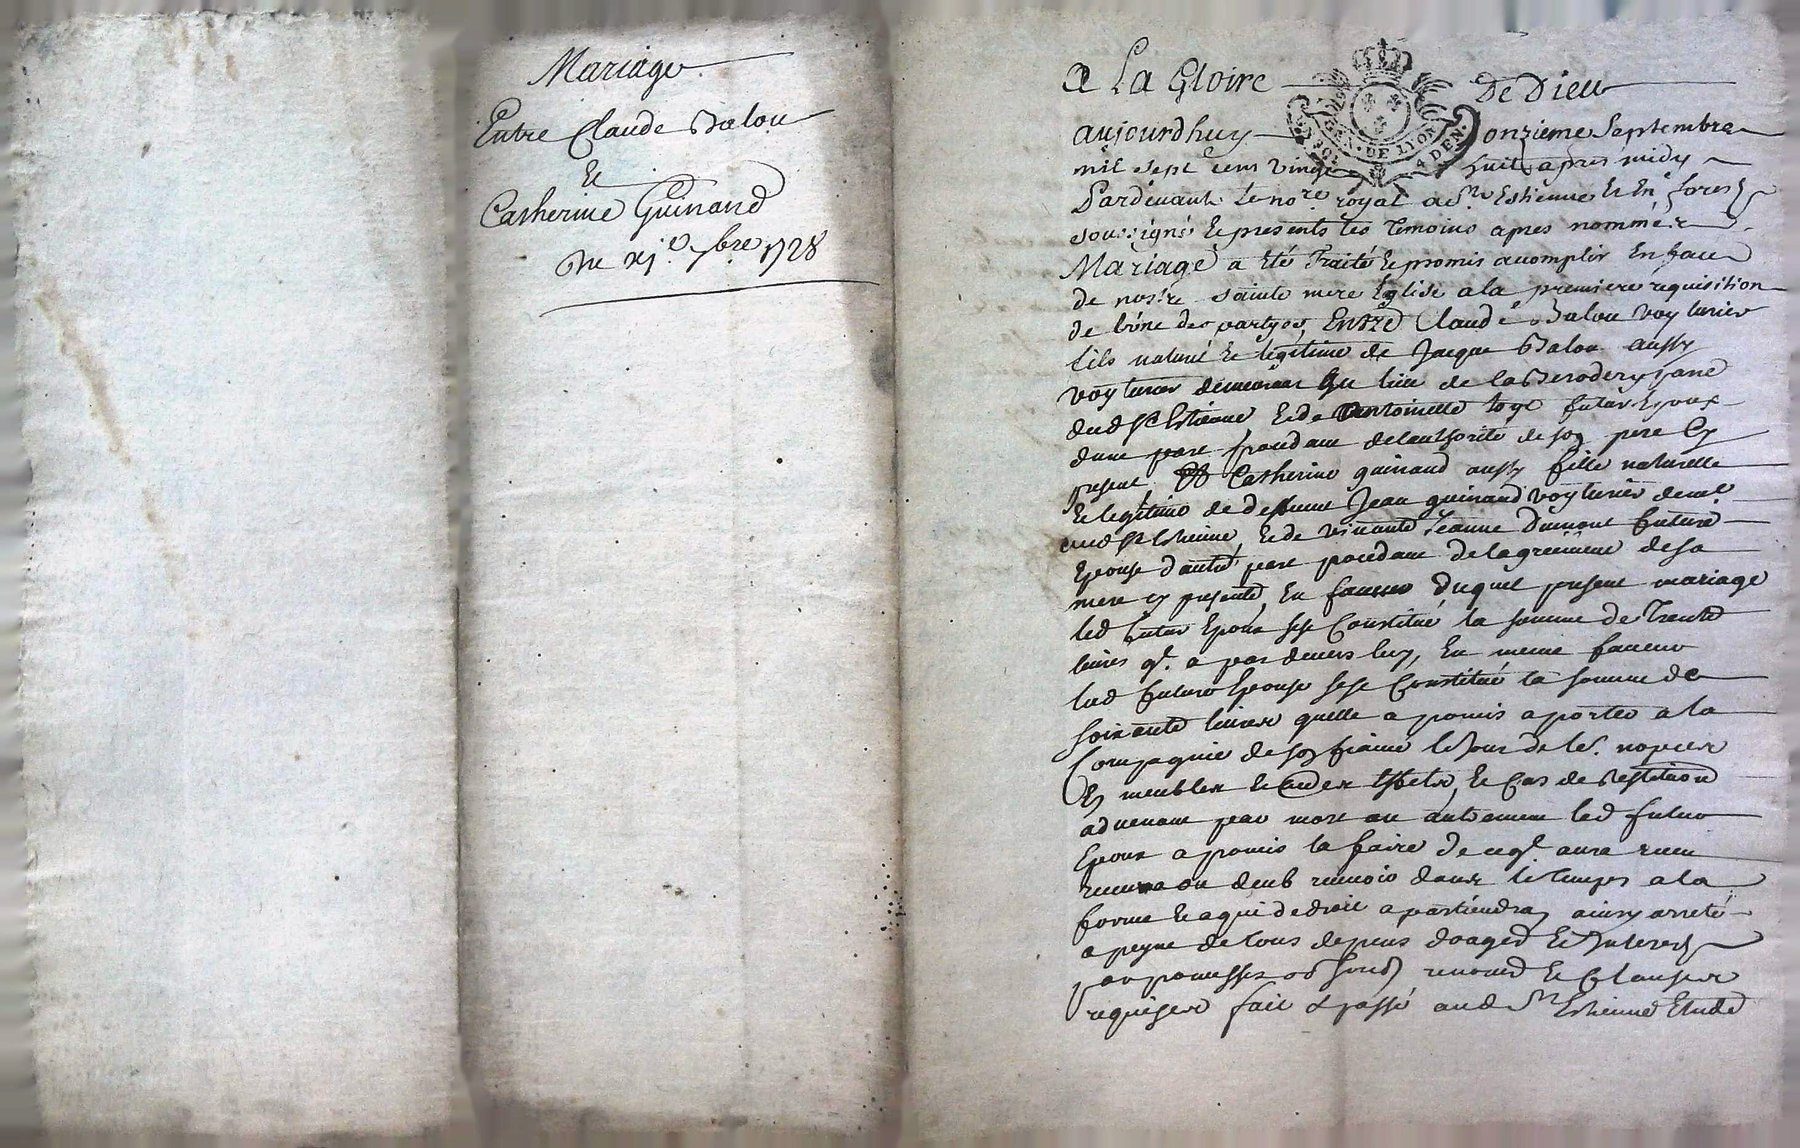 Mariage
Entre Claude Balou
Et
Catherine Guinand
Du xj.e 7bre 1728
A La Gloire De Dieu
GEN. DE LYON 4 DEN.
aujourdhuy onzieme Septembre
mil sept cens vingt huit apres midy
Pardevant le no.re royal a St Estienne Et En forest
soussigné Et presents les temoins apres nommés
Mariage a Eté Traité Et promis accomplir En face
de nostre sainte mere Eglise a la premiere requisition
de lune des partyes, Entre Claude Balou voyturier
fils naturel Et legitime de Jacque Balou aussy
voyturier demeurant au lieu de la
dud St Estienne, Et de Antoinette futur Epoux
dune part procedant de lauthorité de son pere Cy
present Et Catherine guinand aussy fille naturelle
Et legitime de defunt Jean guinand voyturier demt
aud St Estienne, Et de vivante Jeanne Dumont future
Epouse d'autre part procedant de lagreement de sa
mere cy presente, En faveur duquel present mariage
led futur Epoux sest Constitué la somme de Trente
livres ql. a par devers luy, En meme faveur
lad future Epouse sest Constitué la somme de
soixante livres quelle a promis aporter a la
Compagnie de son fiancé le jour de le. nopces
En meubles Et autres Effets, Et Cas de restitution
advenant par mort ou autrement led futur
Epoux a promis la faire de ce ql aura receu
ou deub recevoir dans le temps a la
forme Et a qui de droit apartiendra, ainsy arreté
a peyne de tous depens domages Et Interest
par promesses renond Et Clauses
requises fait & passé aud St Estienne Etude